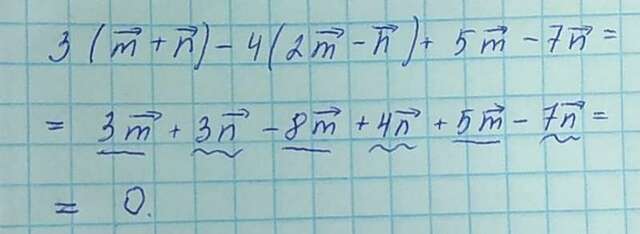 3 (m⃗ + n⃗) - 4 (2m⃗ - n⃗) + 5m⃗ - 7n⃗ =
= 3m⃗ + 3n⃗ - 8m⃗ + 4n⃗ + 5m⃗ - 7n⃗ =
= 0.